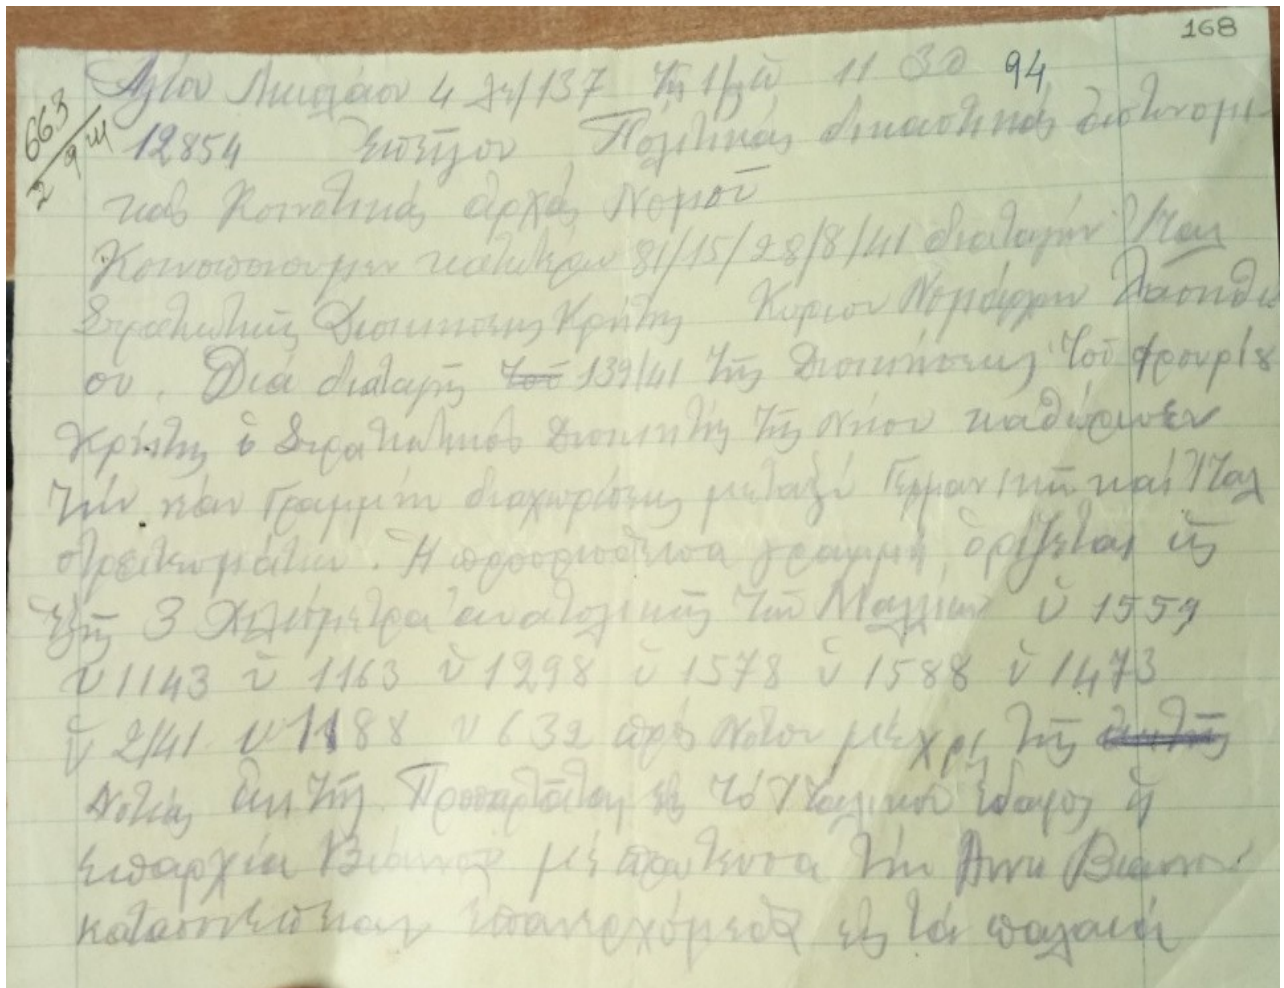 168
Αγίου Νικολάου 4 λε/137 τῆς 1/9 11 30 94
663
2 9 41
12854 Ἐπεῖγον Πολιτικάς δικαστικάς ἀστυνομι-
κάς Κοινοτικάς ἀρχάς Νομοῦ
Κοινοποιοῦμεν κατωτέρω 81/15/28/8/41 διαταγήν Ἰταλ
Στρατιωτικῆς Διοικήσεως Κρήτης Κύριον Νομάρχην Λασηθί
ου. Διά διαταγῆς τοῦ 139/41 τῆς Διοικήσεως τοῦ φρουρίου
Κρήτης ὁ Στρατιωτικός Διοικητής τῆς νήσου καθώρισεν
τήν νέαν Γραμμήν διαχωρίσεως μεταξύ Γερμανικῶν καί Ἰταλ
στρατευμάτων. Ἡ προσφισθεῖσα γραμμή ὁρίζεται ὡς
ἑξῆς 3 χιλιόμετρα ἀνατολικῶς τῶν Μαλλίων ὑ 1559
υ 1143 ὑ 1163 ὑ 1298 ὑ 1578 ὑ 1588 ὑ 1473
ὑ 2141 υ 1188 υ 632 πρός Νότον μέχρι τῆς
Νοτίας ἀκτῆς. Προσαρτᾶται εἰς τό Ἰταλικόν ἔδαφος ἡ
ἐπαρχία Βιάννου μέ πρωτεύουσα τήν Ἄνω Βιάννο
ἐπανερχόμεθα εἰς τά παλαιά